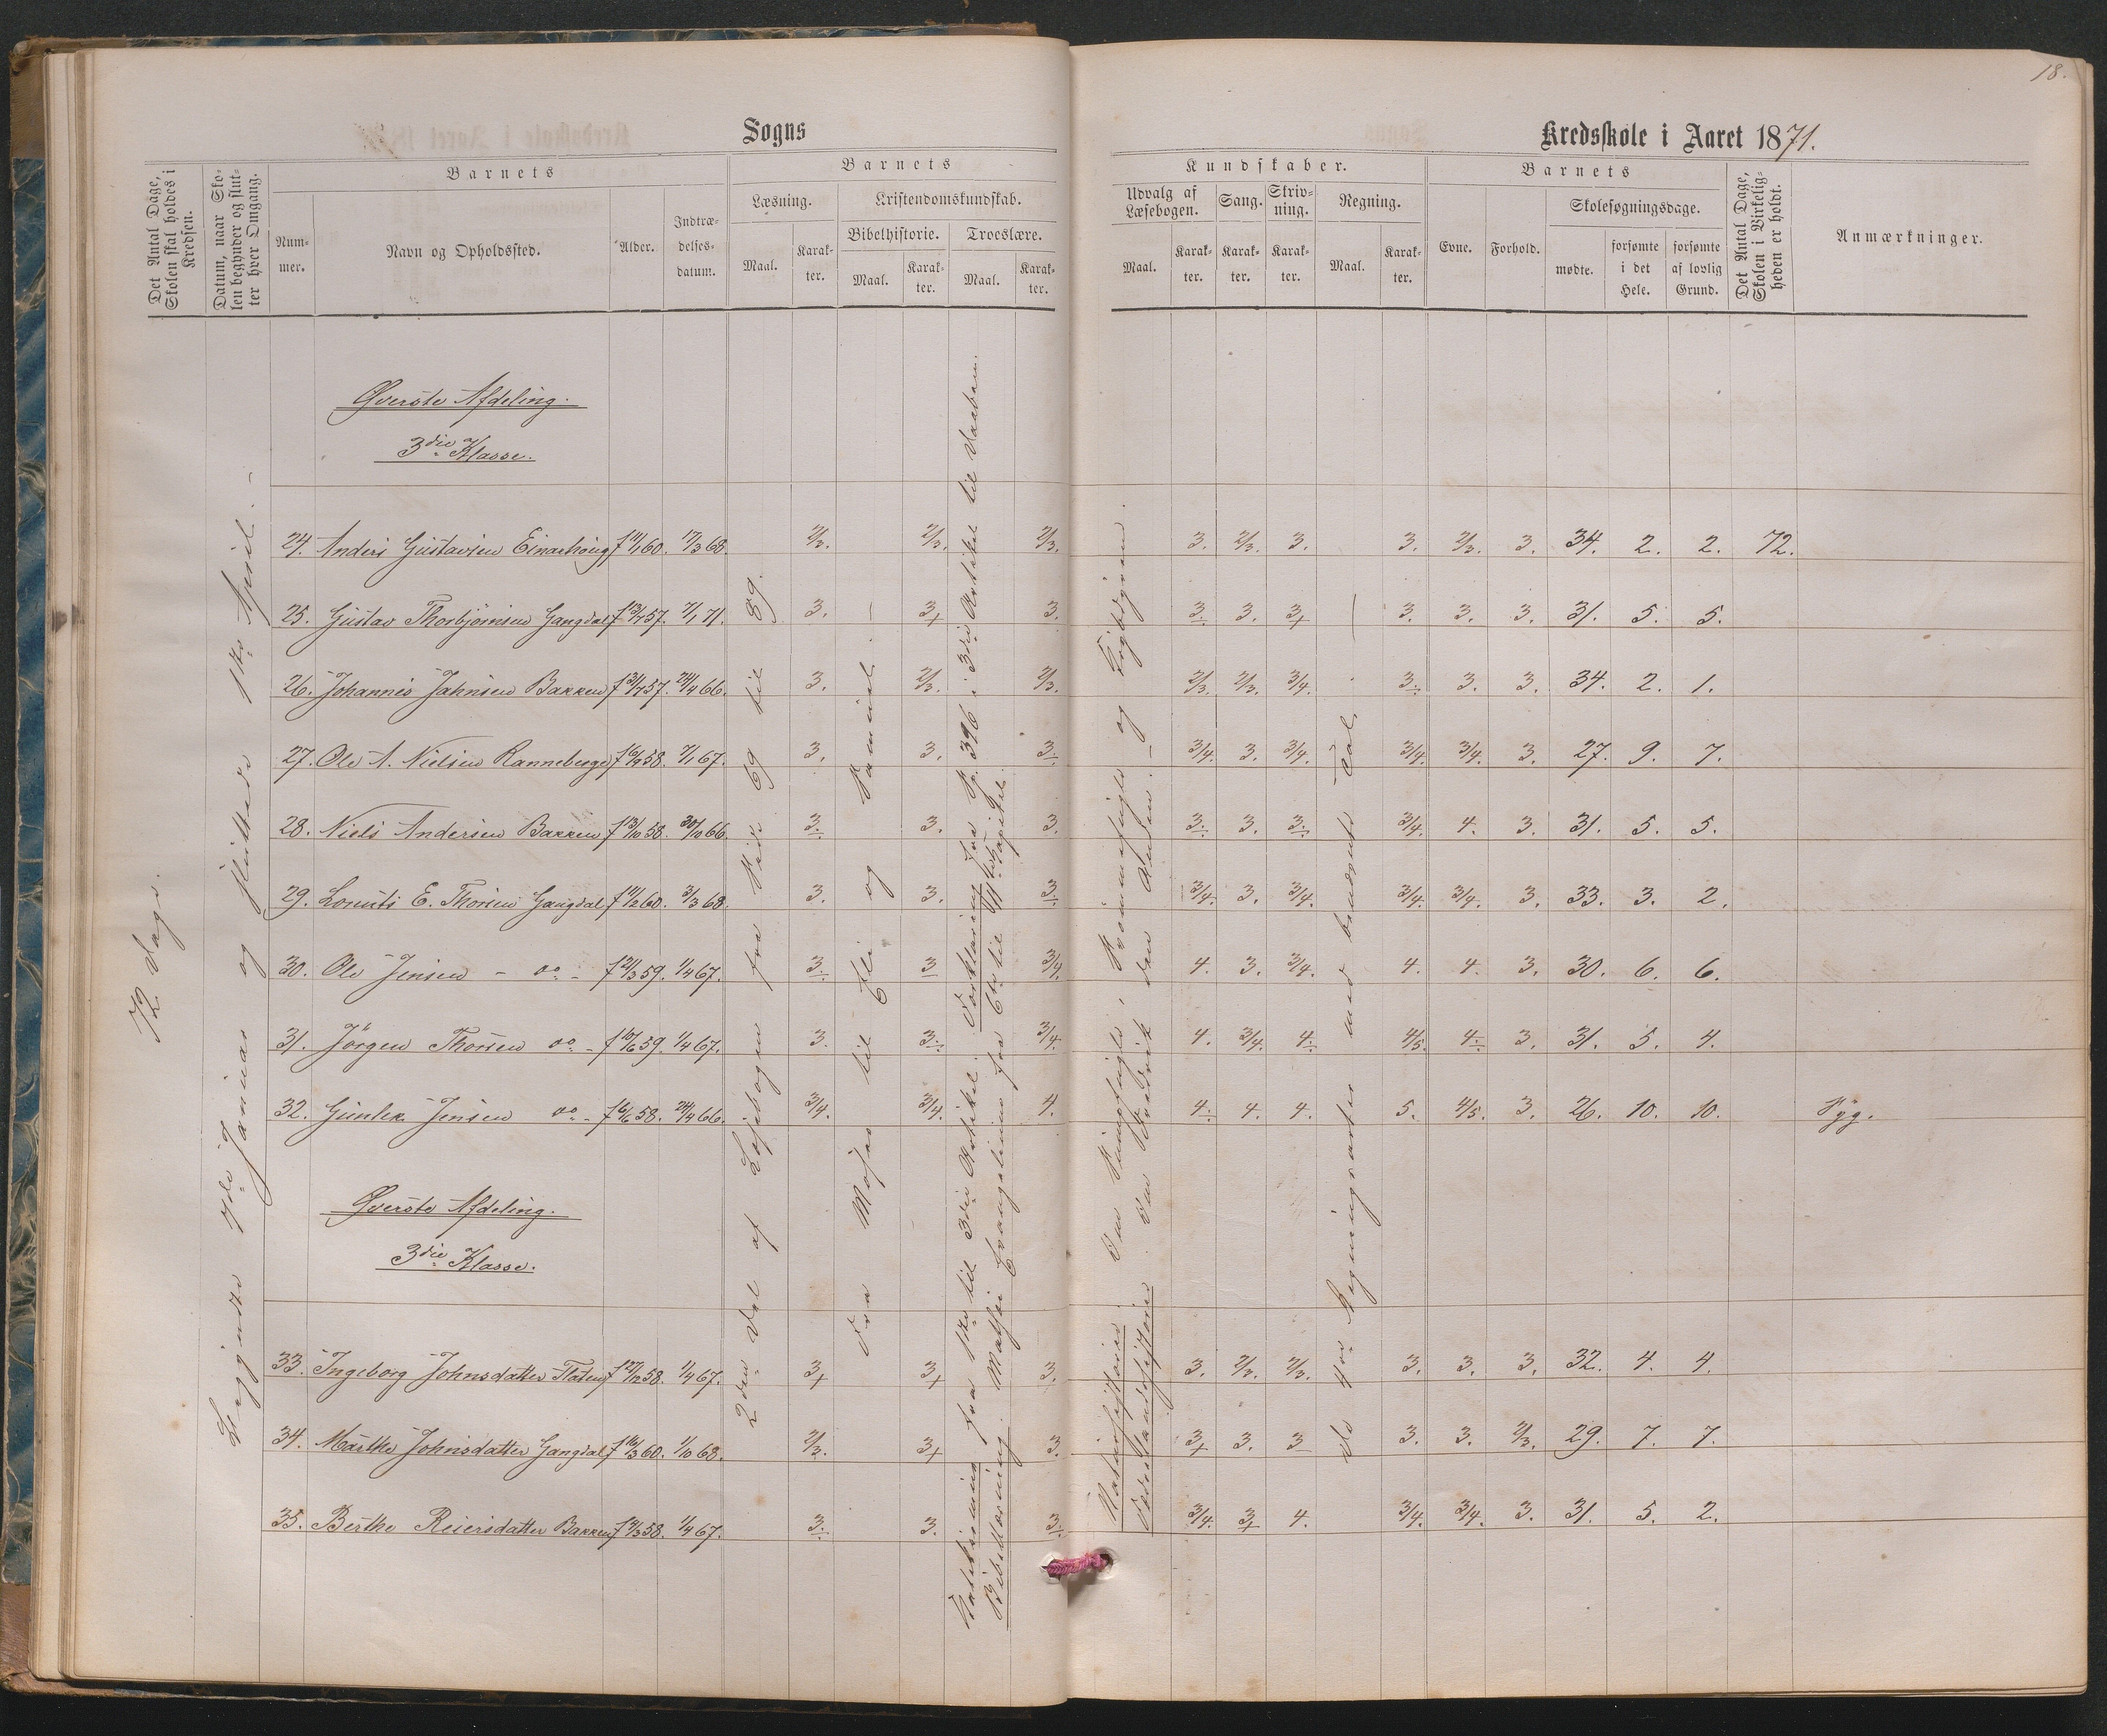 18.
Sogns
Kredsskole i Aaret 1871.
Det Antal Dage, Skolen skal holdes i Kredsen.
Datum, naar Skolen begynder og slutter hver Omgang.
Barnets
Nummer.
Navn og Opholdssted.
Alder.
Indtrædelsesdatum.
Barnets
Læsning.
Maal.
Karakter.
Kristendomskundskab.
Bibelhistorie.
Maal.
Karakter.
Troeslære.
Maal.
Karakter.
Kundskaber.
Udvalg af Læsebogen.
Maal.
Karakter.
Sang.
Karakter.
Skrivning.
Karakter.
Regning.
Maal.
Karakter.
Barnets
Evne.
Forhold.
Skolesøgningsdage.
mødte.
forsømte i det Hele.
forsømte af lovlig Grund.
Det Antal Dage, Skolen i Virkeligheden er holdt.
Anmærkninger.
72 Dage.
Begyndte 7de Januar og sluttede 1ste April. -
2den Del af Læsebogen fra Side 69 til 89.
Fra Moses til Eli og Samuel. -
fra 1ste til 3die Artikel. Forklaring fra Sp. 396 i 3die Artikel til Daaben.
Bibellæsning. Mathæi Evangelium fra 6te til Kapitel.
Naturhistorie: Svømmefugle og
Fædrelandshistorie: Fredrik den Anden. -
De 4re Regningsarter med benævnte Tal. -
Øverste Afdeling.
3die Klasse.
24. Anders Gustavsen Einarhoug f 11/1 60. 17/3 68. 2/3. 2/3. 2/3. 3. 2/3. 3. 3. 2/3. 3. 34. 2. 2. 72.
25. Gustav Thorbjørnsen Gangdal f 13/7 57. 7/1 71. 3. 3+ 3. 3. 3. 3+ 3. 3. 3. 31. 5. 5.
26. Johannes Jahnsen Bakken f 31/7 57. 24/4 66. 3. 2/3. 2/3. 2/3. 2/3. 3/4. 3. 3. 3. 34. 2. 1.
27. Ole A. Nielsen Ranneberge f 16/4 58. 7/1 67. 3. 3. 3. 3/4. 3. 3/4. 3/4. 3/4. 3. 27. 9. 7.
28. Niels Andersen Bakken f 13/10 58. 30/10 66. 3. 3. 3. 3. 3. 3. 3/4. 4. 3. 31. 5. 5.
29. Lorents E. Thorsen Gangdal f 11/2 60. 3/3 68. 3. 3. 3. 3/4. 3. 3/4. 3/4. 3/4. 3. 33. 3. 2.
30. Ole Jensen - do - f 21/3 59. 1/4 67. 3. 3 3/4. 4. 3. 3/4. 4. 4. 3. 30. 6. 6.
31. Jörgen Thorsen do - f 10/6 59. 1/4 67. 3. 3. 3/4. 4. 3/4. 4. 4/5. 4. 3. 31. 5. 4.
32. Gunlek Jensen do - f 6/6 58. 24/4 66. 3/4. 3/4. 4. 4. 4. 4. 5. 4/5. 3. 26. 10. 10. Syg.
Øverste Afdeling.
3die Klasse.
33. Ingeborg Johnsdatter Flaten f 27/12 58. 1/4 67. 3+ 3+ 3. 3. 2/3. 2/3. 3. 3. 3. 32. 4. 4.
34. Marthe Johnsdatter Gangdal f 16/3 60. 1/10 68. 2/3. 3+ 3. 3+ 3. 3 3. 3. 2/3. 29. 7. 7.
35. Berthe Reiersdatter Bakken f 9/3 58. 1/4 67. 3. 3. 3. 3/4. 3+ 4. 3/4. 3/4. 3. 31. 5. 2.